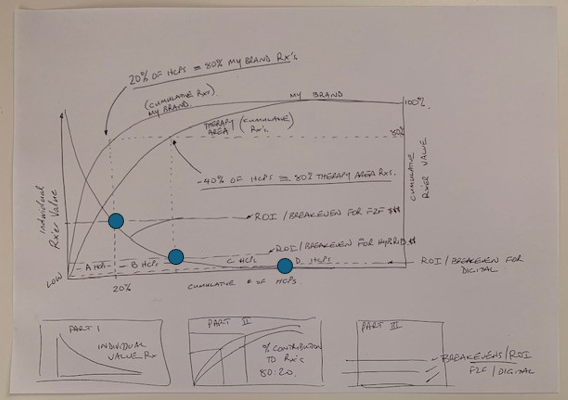 20% OF HCPS = 80% MY BRAND RX'S.
(CUMULATIVE RXS)
MY BRAND.
MY BRAND
100%
THERAPY (CUMULATIVE
AREA RX'S)
80%
~40% OF HCPS = 80% THERAPY AREA RXS.
INDIVIDUAL
RX'ER VALUE
CUMULATIVE
RX'ER VALUE
ROI/BREAKEVEN FOR F2F $$$
ROI/BREAKEVEN FOR HYBRID $$
ROI/BREAKEVEN FOR
DIGITAL
LOW
A HCPS
B HCPS
C HCPS
D HCPS
20%
CUMULATIVE # OF HCPS
PART I
INDIVIDUAL
VALUE RX
PART II
% CONTRIBUTION
TO RX'S
80:20.
PART III
BREAKEVENS/ROI
F2F/DIGITAL